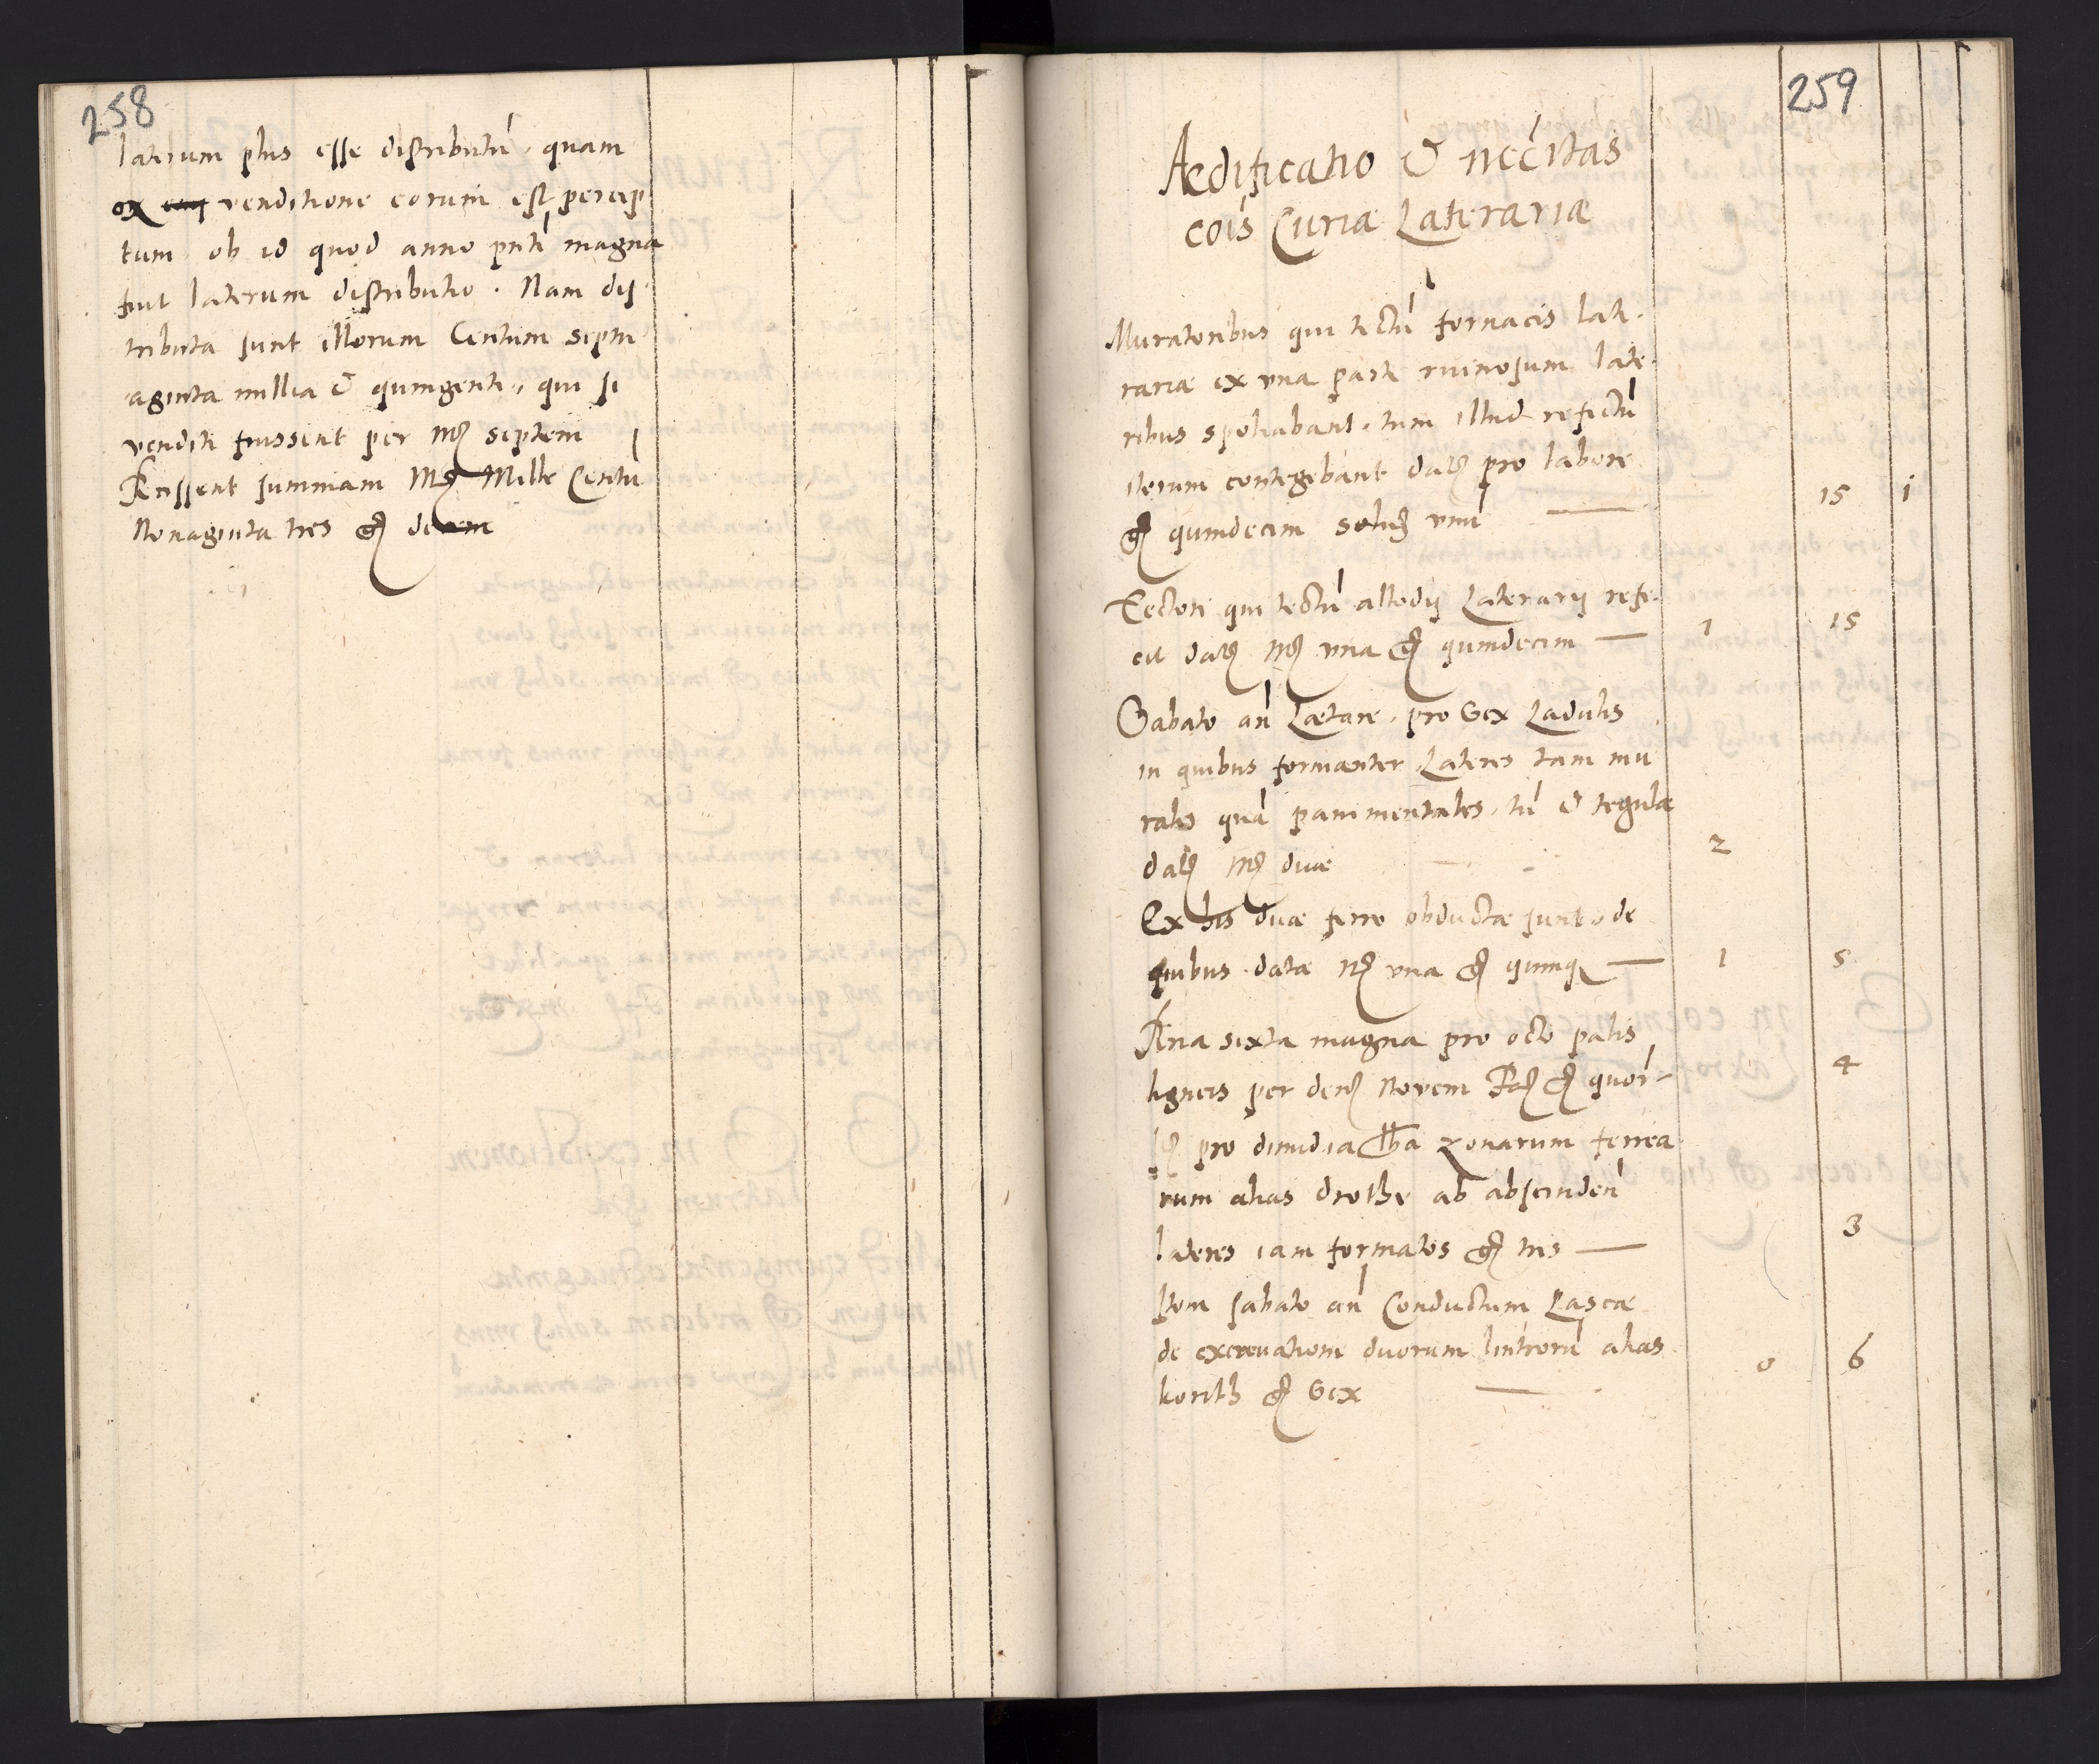 258
laterum plus esse distributũ, quam
ex venditione eorum est percep
tum ob id quod anno pnti magna
fuit laterum distributio. Nam dis
tributa sunt illorum Centum septu
aginta millia & quingenti, qui si
venditi fuissent per mr̃ septem
fecissent summam Mr̃ Mille Centũ
Nonaginta tres gr̃ decem
259
Aedificatio & nec̃itas
cois̃ Curiæ Laterariæ
Muratoribus qui tectũ fornacis late.
rariæ ex vna parte ruinosum late.
ribus spoliabant, tum illud refectũ
iterum contegebant dat̃ pro labore
gr̃ quindecim solid̃ vnũ — 15 i
Tectori qui tectũ allodij Laterarij refe.
cit dat̃ mr̃ vna gr̃ quindecim — 1 15
Sabato an̄ Lætare, pro sex Ladulis
in quibus formanter Lateres tam mu
rales quã pauimentales, tũ & tegulæ
dat̃ mr̃ duæ — 2
Ex his duæ ferro obductæ sunt, de
quibus data mr̃ vna gr̃ quinq — 1 5
Feria sexta magna pro octo palis
ligneis per den̄ Novem Fac̃ gr̃ quor̃ - 4
It̃ pro dimidia lib̃a zonarum ferrea
rum alias drothe ab abscinden̄
lateres iam formatos gr̃ tres — 3
Item sabato an̄ Conductum Pascæ
de excavatione duorum lintrorũ alias
korith gr̃ sex — 0 6